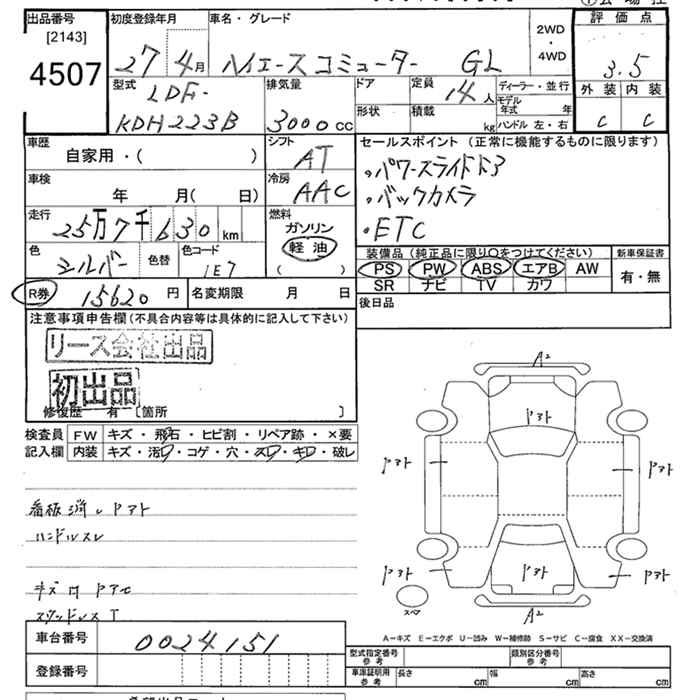 出品番号
[2143]
4507
初度登録年月
27年4月
車名・グレード
ハイエースコミューター GL
2WD
・
4WD
評価点
3.5
外装 内装
C C
型式
LDF-
KDH223B
排気量
3000cc
ドア
形状
定員
14人
積載
kg
ディーラー・並行
モデル年式 年
ハンドル 左・右
車歴
自家用・( )
シフト
AT
車検
年 月( 日)
冷房
AAC
走行
25万7千630km
燃料
ガソリン
軽油
( )
色
シルバー
色替
色コード
1E7
R券 15620円
名変期限 月 日
セールスポイント (正常に機能するものに限ります)
・パワースライドドア
・バックカメラ
・ETC
装備品 (純正品に限り○をつけてください)
PS PW ABS エアB AW
SR ナビ TV カワ
新車保証書
有・無
後日品
注意事項申告欄(不具合内容等は具体的に記入して下さい)
リース会社出品
初出品
修復歴 有 [箇所 ]
検査員記入欄
FW キズ・飛石・ヒビ割・リペア跡・×要
内装 キズ・汚れ・コゲ・穴・スレ・キレ・破レ
看板消し
ハンドルスレ
A2
A2
スペア
A－キズ E－エクボ U－凹み W－補修跡 S－サビ C－腐食 XX－交換済
車台番号 0024151
登録番号
型式指定番号
参考
類別区分番号
参考
車庫証明用
参考
長さ cm
幅 cm
高さ cm